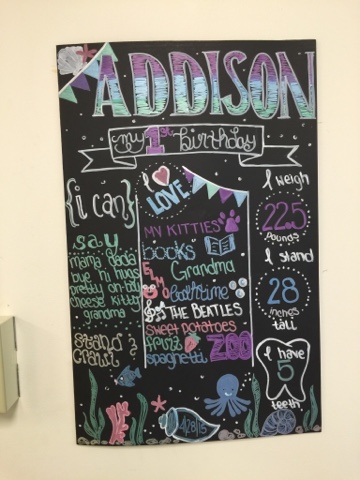 ADDISON
my 1st birthday
{i can}
say
mama dada
bye hi hugs
pretty uh-oh
cheese kitty
grandma
stand &
crawl
I
LOVE
MY KITTIES
books
ELMO
Grandma
bathtime
THE BEATLES
sweet potatoes
fruit
spaghetti
ZOO
I weigh
22.5
pounds
I stand
28
inches
tall
I have
5
teeth
4/28/15